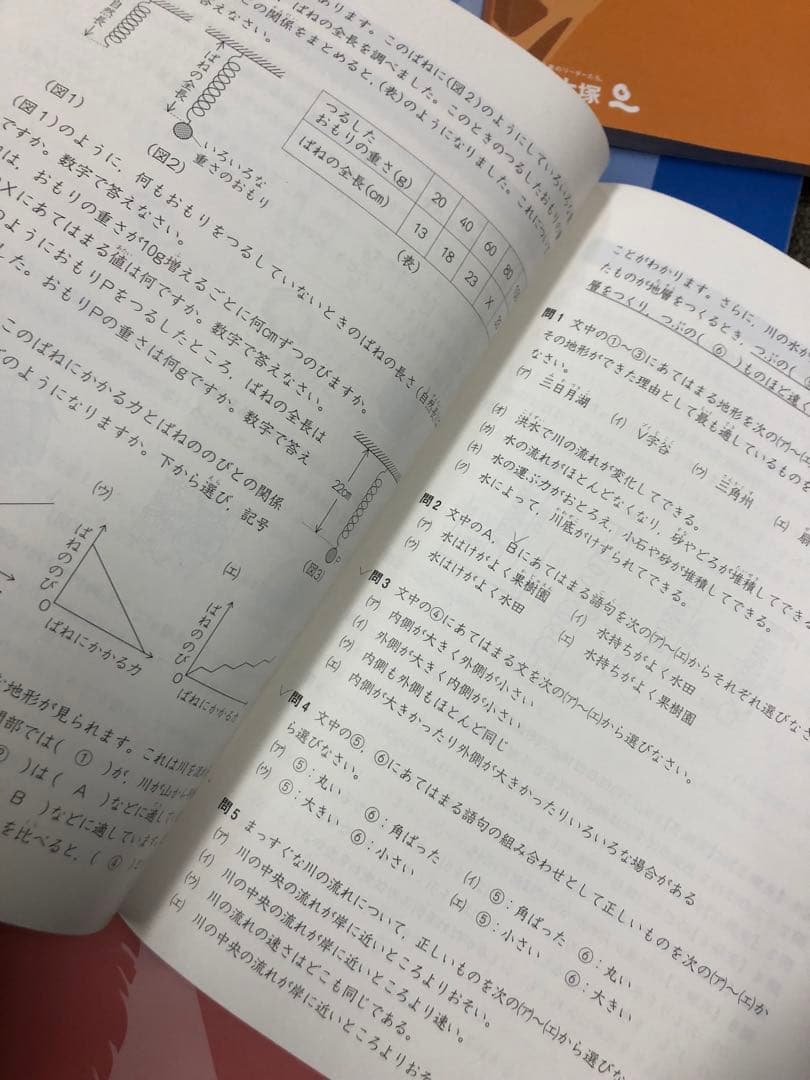 自然長
ばねの全長
いろいろな
重さのおもり
(図1)
(図2)
あります。このばねに(図2)のようにしていろいろな重
ばねの全長を調べました。このときのつるしたおもりの重
この関係をまとめると、(表)のようになりました。これについて
答えなさい。
つるした
おもりの重さ(g) 20 40 60 80
ばねの全長(cm) 13 18 23 X
(表)
(図1)のように、何もおもりをつるしていないときのばねの長さ(自然長)
ですか。数字で答えなさい。
は、おもりの重さが10g増えるごとに何cmずつのびますか。
Xにあてはまる値は何ですか。数字で答えなさい。
のようにおもりPをつるしたところ、ばねの全長は
した。おもりPの重さは何gですか。数字で答え
このばねにかかる力とばねののびとの関係
どのようになりますか。下から選び、記号
22cm
P
(図3)
(ウ)
ばねののび
O
ばねにかかる力
(エ)
ばねののび
O
ばねにかかる
地形が見られます。これは川を
部では( ① )が、川が山から
)は( A )などに適して
B )などに適しています
を比べると、( ④ )
塚
ことがわかります。さらに、川の水が
たものが地層をつくるとき、つぶの(
層をつくり、つぶの( ⑥ )ものほど遠く
問1 文中の①〜③にあてはまる地形を次の(ア)〜(エ)
その地形ができた理由として最も適しているものを
なさい。
(ア) 三日月湖 (イ) V字谷 (ウ) 三角州 (エ) 扇
(オ) 洪水で川の流れが変化してできる。
(カ) 水の流れがほとんどなくなり、砂やどろが堆積してできる
(キ) 水の運ぶ力がおとろえ、小石や砂が堆積してできる。
(ク) 水によって、川底がけずられてできる。
問2 文中のA、Bにあてはまる語句を次の(ア)〜(エ)からそれぞれ選びなさ
(ア) 水はけがよく果樹園 (イ) 水持ちがよく水田
(ウ) 水はけがよく水田 (エ) 水持ちがよく果樹園
問3 文中の④にあてはまる文を次の(ア)〜(エ)から選びなさい。
(ア) 内側が大きく外側が小さい
(イ) 外側が大きく内側が小さい
(ウ) 内側も外側もほとんど同じ
(エ) 内側が大きかったり外側が大きかったりいろいろな場合がある
問4 文中の⑤、⑥にあてはまる語句の組み合わせとして正しいものを次の(ア)〜(エ)か
ら選びなさい。
(ア) ⑤:丸い ⑥:角ばった (イ) ⑤:角ばった ⑥:丸い
(ウ) ⑤:大きい ⑥:小さい (エ) ⑤:小さい ⑥:大きい
問5 まっすぐな川の流れについて、正しいものを次の(ア)〜(エ)から選びな
(ア) 川の中央の流れが岸に近いところよりおそい。
(イ) 川の中央の流れが岸に近いところより速い。
(ウ) 川の流れの速さはどこも同じである。
(エ) 川の中央の流れが岸に近いところよりおそ